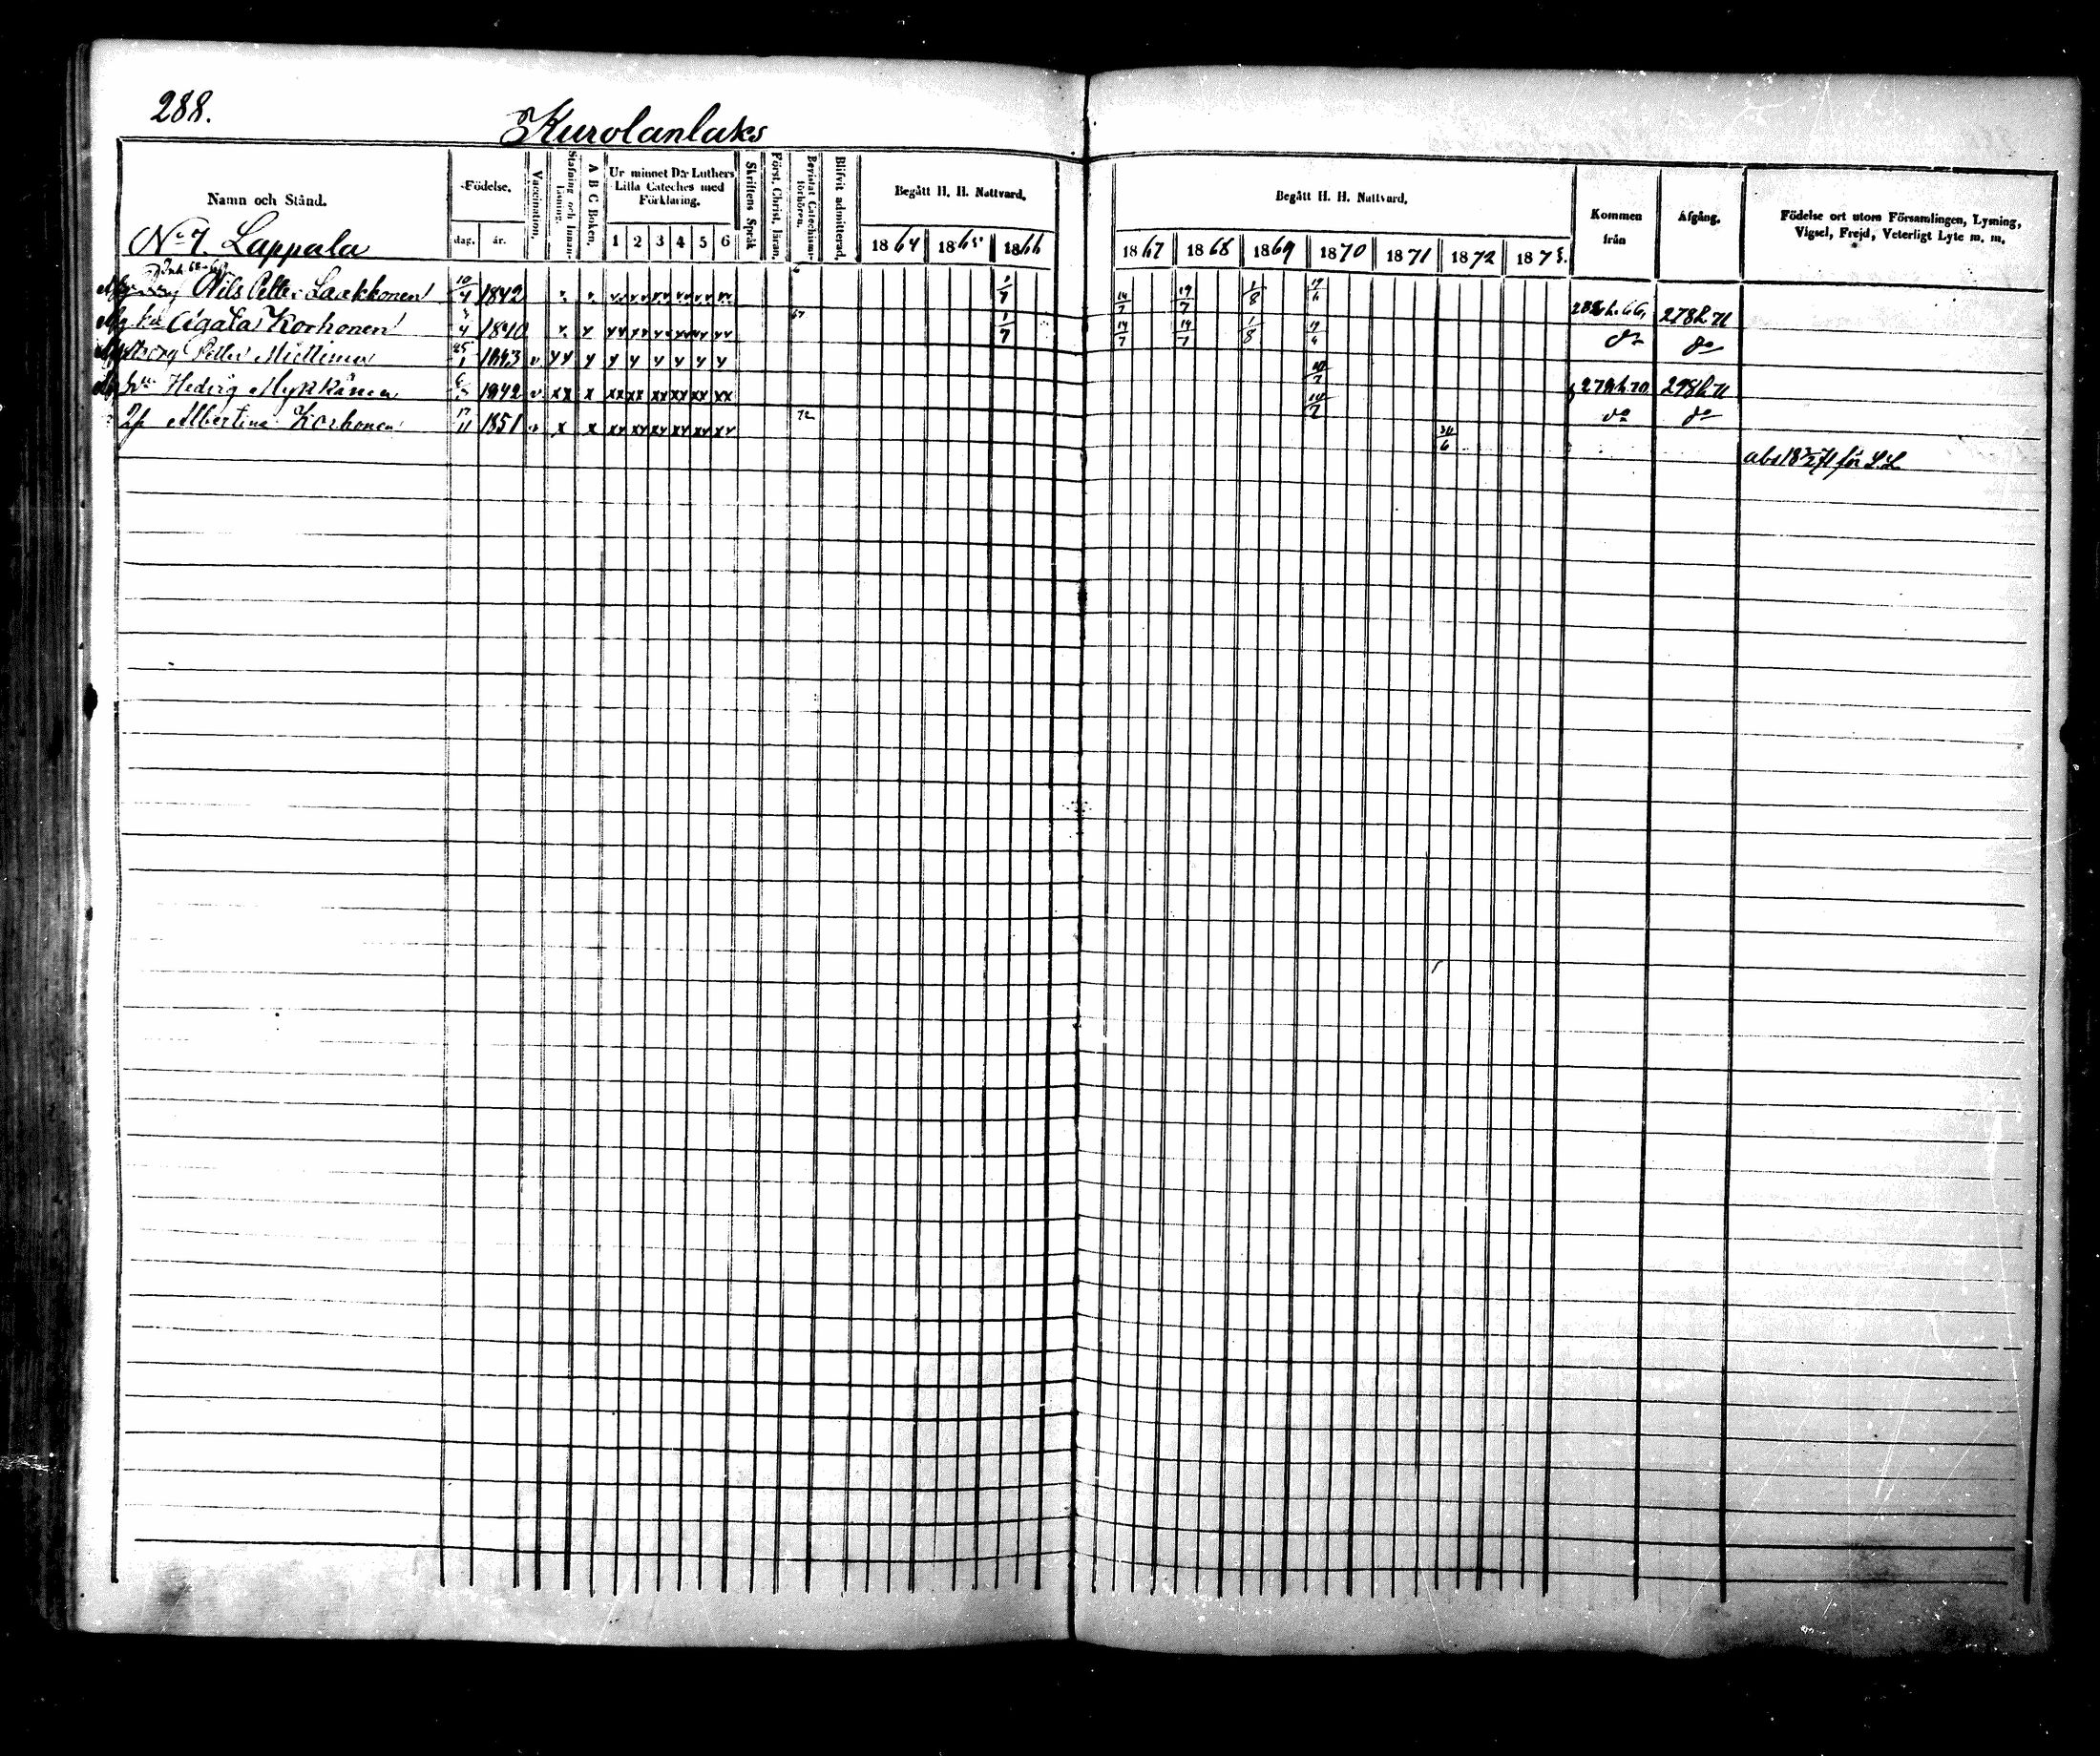 288.
Kurolanlaks
Namn och Stånd.
Födelse.
dag. år.
Vaccination.
Stafning och Innan-läsning.
A B C Boken.
Ur minnet D:r Luthers Lilla Cateches med Förklaring.
1 2 3 4 5 6
Skriftens Språk
Först. Christ. läran.
Bevistat Catechismi-förhören.
Blifvit admitterad.
Begått H. H. Nattvard.
1864 1865 1866
Begått H. H. Nattvard.
1867 1868 1869 1870 1871 1872 1873.
Kommen från
Afgång.
Födelse ort utom Församlingen, Lysning, Vigsel, Frejd, Veterligt Lyte m. m.
No 7. Lappala
Nils Petter Laukkonen 10/4 1842 1/7 14/7 19/7 1/8 278 h. 71
hu Agata Korhonen 1840 67 1/7 14/7 19/7 1/8 do do
Petter Miettinen 25/1 1843 v y y y y y y y y y 279 h. 70 298 h. 71
hu Hedvig Mykkänen 1842 v xx x xx xx xx xx xx xx do do
Albertina Korhonen 17/11 1851 x x 72 30/6 för L.L.